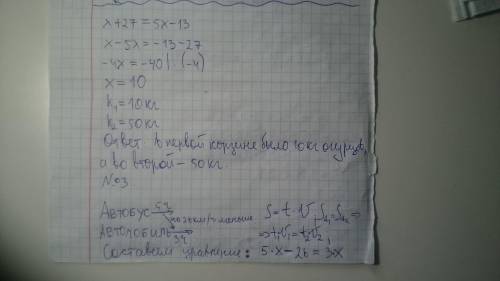 x+27=5x-13
x-5x=-13-27
-4x=-40 |:(-4)
x=10
k₁=10кг
k₂=50кг
Ответ в первой корзине было 10 кг огурцов,
а во второй - 50 кг.
№3
Автобус 5ч S=t·v, S₁=S₂ ⇒
Автомобиль 3ч ⇒ t₁v₁=t₂v₂,
Составляем уравнение: 5·x-26=3·x